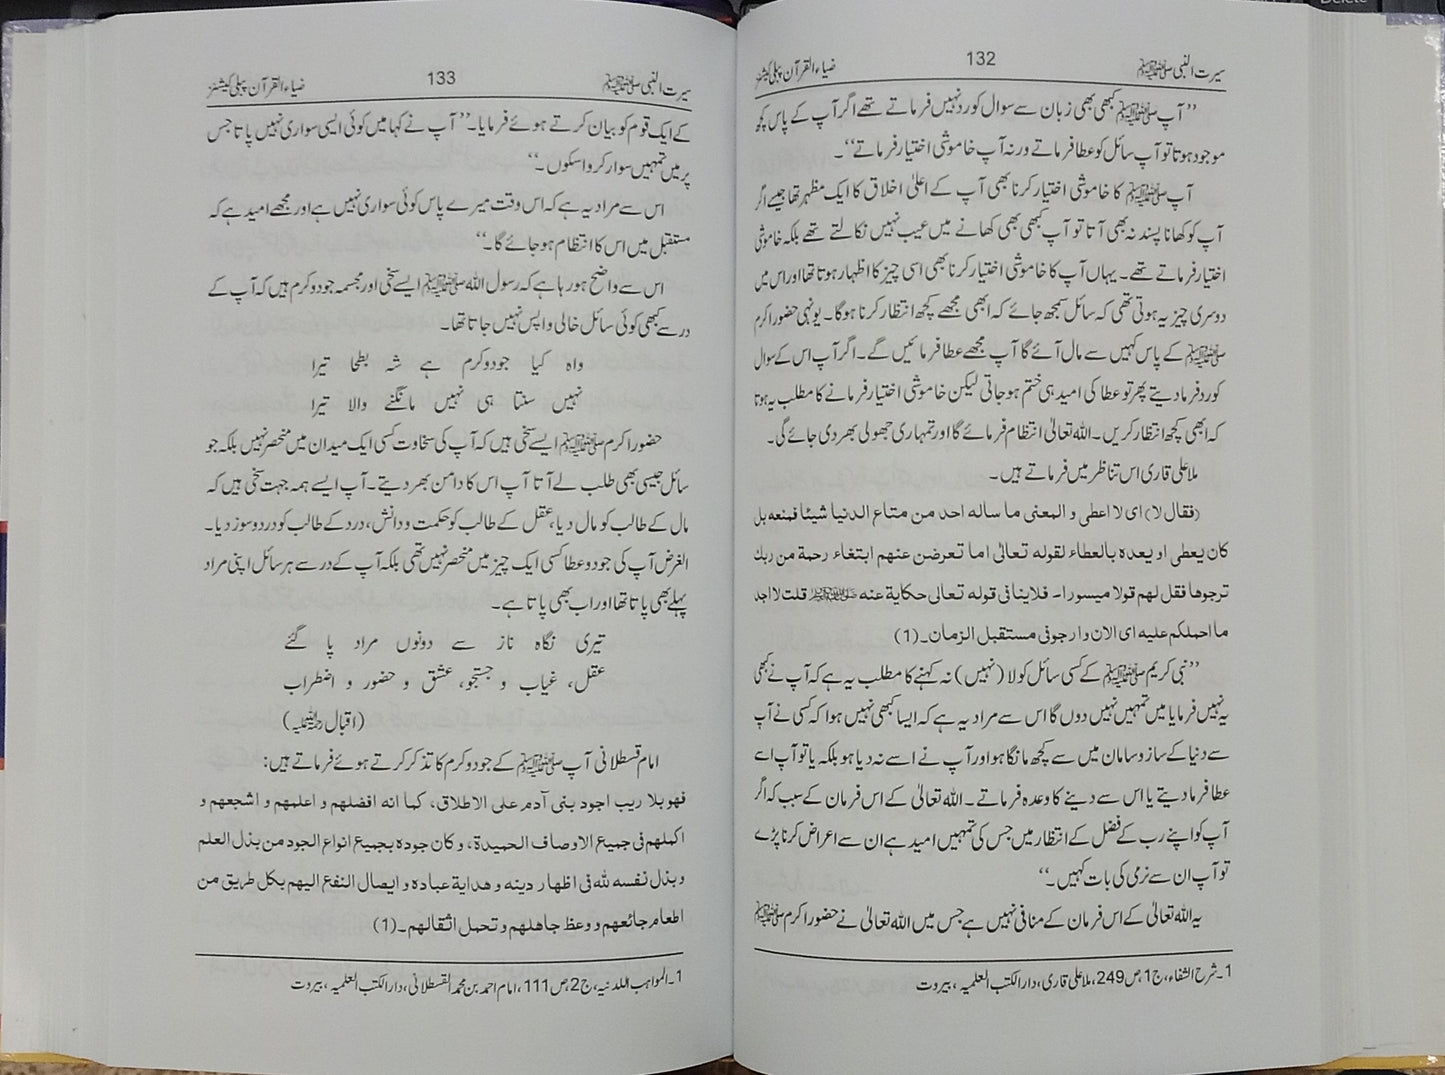 سیرت النبی ﷺ 132 ضیاء القرآن پبلی کیشنز
”آپ ﷺ کبھی بھی زبان سے سوال کو رد نہیں فرماتے تھے اگر آپ کے پاس کچھ
موجود ہوتا تو آپ سائل کو عطا فرماتے ورنہ آپ خاموشی اختیار فرماتے“۔
آپ ﷺ کا خاموشی اختیار کرنا بھی آپ کے اعلیٰ اخلاق کا ایک مظہر تھا جیسے اگر
آپ کو کھانا پسند نہ بھی آتا تو آپ کبھی بھی کھانے میں عیب نہیں نکالتے تھے بلکہ خاموشی
اختیار فرماتے تھے۔ یہاں آپ کا خاموشی اختیار کرنا بھی اسی چیز کا اظہار ہوتا تھا اور اس میں
دوسری چیز یہ ہوتی تھی کہ سائل سمجھ جائے کہ ابھی مجھے کچھ انتظار کرنا ہوگا۔ یونہی حضور اکرم
ﷺ کے پاس کہیں سے مال آئے گا آپ مجھے عطا فرمائیں گے۔ اگر آپ اس کے سوال
کو رد فرما دیتے پھر تو عطا کی امید ہی ختم ہو جاتی لیکن خاموشی اختیار فرمانے کا مطلب یہ ہوتا
کہ ابھی کچھ انتظار کریں۔ اللہ تعالیٰ انتظام فرمائے گا اور تمہاری جھولی بھر دی جائے گی۔
ملا علی قاری اس تناظر میں فرماتے ہیں۔
(فقال لا) ای لا اعطی و المعنی ما ساله احد من متاع الدنیا شیئا فمنعه بل
کان یعطی او یعده بالعطاء لقوله تعالیٰ اما تعرضن عنهم ابتغاء رحمة من ربك
ترجوها فقل لهم قولا میسورا۔ فلاینافی قوله تعالی حکایة عنه ﷺ قلت لا اجد
ما احملکم علیه ای الان وارجوفی مستقبل الزمان۔(1)
”نبی کریم ﷺ کے کسی سائل کو لا (نہیں) نہ کہنے کا مطلب یہ ہے کہ آپ نے کبھی
یہ نہیں فرمایا میں تمہیں نہیں دوں گا اس سے مراد یہ ہے کہ ایسا کبھی نہیں ہوا کہ کسی نے آپ
سے دنیا کے ساز و سامان میں سے کچھ مانگا ہو اور آپ نے اسے نہ دیا ہو بلکہ یا تو آپ اسے
عطا فرما دیتے یا اس سے دینے کا وعدہ فرماتے۔ اللہ تعالیٰ کے اس فرمان کے سبب کہ اگر
آپ کو اپنے رب کے فضل کے انتظار میں جس کی تمہیں امید ہے ان سے اعراض کرنا پڑے
تو آپ ان سے نرمی کی بات کہیں۔“
یہ اللہ تعالیٰ کے اس فرمان کے منافی نہیں ہے جس میں اللہ تعالیٰ نے حضور اکرم ﷺ
1۔ شرح الشفاء، ج 1، ص 249، ملا علی قاری، دارالکتب العلمیہ، بیروت
سیرت النبی ﷺ 133 ضیاء القرآن پبلی کیشنز
کے ایک قوم کو بیان کرتے ہوئے فرمایا۔ ”آپ نے کہا میں کوئی ایسی سواری نہیں پاتا جس
پر میں تمہیں سوار کروا سکوں۔“
اس سے مراد یہ ہے کہ اس وقت میرے پاس کوئی سواری نہیں ہے اور مجھے امید ہے کہ
مستقبل میں اس کا انتظام ہو جائے گا۔“
اس سے واضح ہو رہا ہے کہ رسول اللہ ﷺ ایسے سخی اور مجسمہ جود و کرم ہیں کہ آپ کے
در سے کبھی کوئی سائل خالی واپس نہیں جاتا تھا۔
واہ کیا جود و کرم ہے شہ بطحا تیرا
نہیں سنتا ہی نہیں مانگنے والا تیرا
حضور اکرم ﷺ ایسے سخی ہیں کہ آپ کی سخاوت کسی ایک میدان میں منحصر نہیں بلکہ جو
سائل جیسی بھی طلب لے آتا آپ اس کا دامن بھر دیتے۔ آپ ایسے ہمہ جہت سخی ہیں کہ
مال کے طالب کو مال دیا، عقل کے طالب کو حکمت و دانش، درد کے طالب کو درد و سوز دیا۔
الغرض آپ کی جود و عطا کسی ایک چیز میں منحصر نہیں تھی بلکہ آپ کے در سے ہر سائل اپنی مراد
پہلے بھی پاتا تھا اور اب بھی پاتا ہے۔
تیری نگاہ ناز سے دونوں مراد پا گئے
عقل، غیاب و جستجو، عشق و حضور و اضطراب
(اقبال رحمۃ اللہ علیہ)
امام قسطلانی آپ ﷺ کے جود و کرم کا تذکر کرتے ہوئے فرماتے ہیں:
فهو بلا ریب اجود بنی آدم علی الاطلاق، کما انه افضلهم و اعلمهم و اشجعهم و
اکملهم فی جمیع الاوصاف الحمیدة، و کان جوده بجمیع انواع الجود من بذل العلم
و بذل نفسه لله فی اظهار دینه و هدایة عباده و ایصال النفع الیهم بکل طریق من
اطعام جائعهم و وعظ جاهلهم و تحمل اثقالهم۔(1)
1۔ المواہب اللدنیہ، ج 2، ص 111، امام احمد بن محمد القسطلانی، دارالکتب العلمیہ، بیروت
Delete